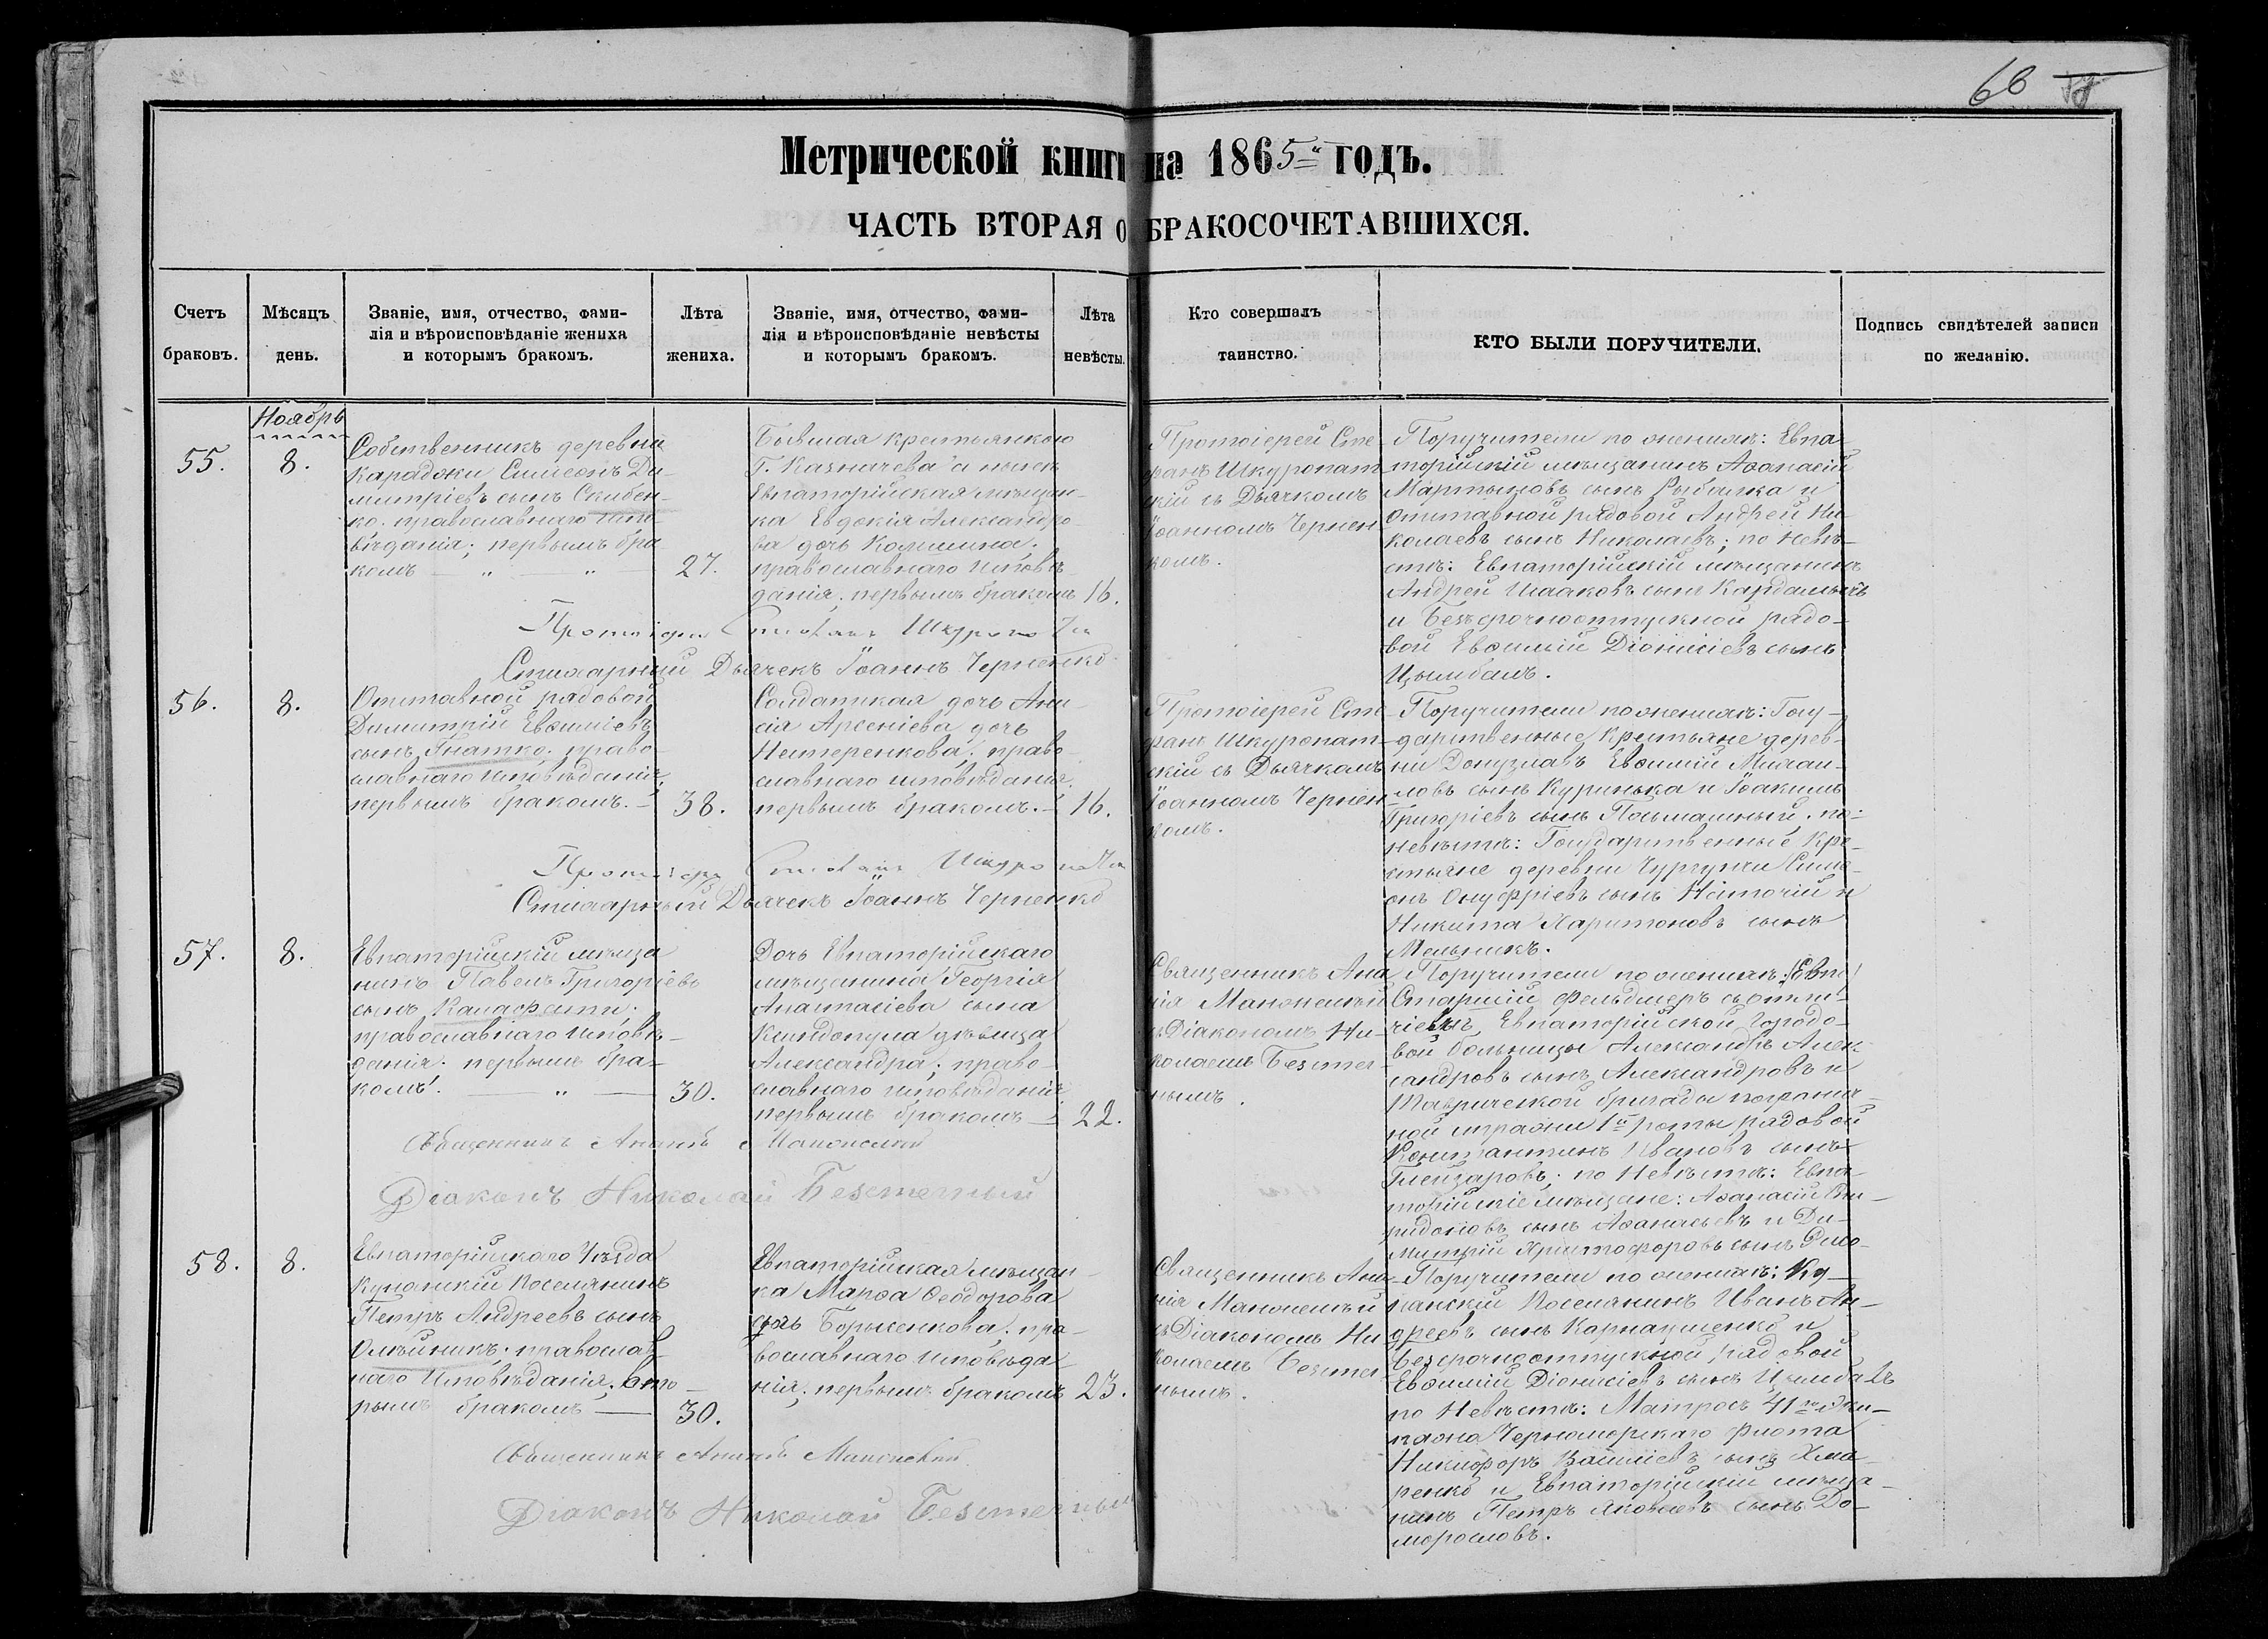 66
Метрической книги на 1865й годъ.
ЧАСТЬ ВТОРАЯ О БРАКОСОЧЕТАВШИХСЯ.
Счетъ браковъ.
Мѣсяцъ день.
Званіе, имя, отчество, фами-
лія и вѣроисповѣданіе жениха
и которымъ бракомъ.
Лѣта жениха.
Званіе, имя, отчество, фами-
лія и вѣроисповѣданіе невѣсты
и которымъ бракомъ.
Лѣта невѣсты.
Кто совершалъ таинство.
КТО БЫЛИ ПОРУЧИТЕЛИ.
Подпись свидѣтелей записи
по желанію.
Ноябрь
55.
8.
Собственникъ деревни
Караджи Симеонъ Ди-
митріевъ сынъ Скибен-
ко. православнаго испо-
вѣданія; первымъ бра-
комъ — „ — „ —
27.
Бывшая крестьянкою
Г. Казначеева а нынѣ
Евпаторійская мѣщан-
ка Евдокія Александро-
ва дочь Калинина;
православнаго исповѣ-
данія; первымъ бракомъ
16.
Протоіерей Сте-
фанъ Шкуропат-
скій съ Дьячкомъ
Іоанномъ Чернен-
комъ.
Поручители по женихѣ: Евпа-
торійскій мѣщанинъ Аѳанасій
Мартыновъ сынъ Рыбалка и
Отставной рядовой Андрей Ни-
колаевъ сынъ Николаевъ; по невѣ-
стѣ: Евпаторійскій мѣщанинъ
Андрей Исааковъ сынъ
и Безсрочноотпускной рядо-
вой Евѳимій Діонисіевъ сынъ
Цымбалъ.
Протоіерей Стефанъ
Стихарный Дьячекъ Іоаннъ Черненко
56.
8.
Отставной рядовой
Димитрій Евѳиміевъ
сынъ Гнатко; право-
славнаго исповѣданія;
первымъ бракомъ. —
38.
Солдатская дочь Ани-
сія Арсеніева дочь
Нестеренкова; право-
славнаго исповѣданія;
первымъ бракомъ. —
16.
Протоіерей Сте-
фанъ Шкуропат-
скій съ Дьячкомъ
Іоанномъ Чернен-
комъ.
Поручители по женихѣ: Госу-
дарственные крестьяне дерев-
ни Донузлавъ Евѳимій Михаи-
ловъ сынъ Куринька и Іоакимъ
Григоріевъ сынъ по
невѣстѣ: Государственные Кре-
стьяне деревни Симе-
онъ Онуфріевъ сынъ и
Никита Харитоновъ сынъ
Мельникъ.
Протоіерей Стефанъ
Стихарный Дьячекъ Іоаннъ Черненко
57.
8.
Евпаторійскій мѣща-
нинъ Павелъ Григоріевъ
сынъ Калафати;
православнаго исповѣ-
данія; первымъ бра-
комъ. — „ —
30.
Дочь Евпаторійскаго
мѣщанина Георгія
Анастасіева сына
дѣвица
Александра; право-
славнаго исповѣданія
первымъ бракомъ —
22.
Священникъ Ана-
нія Манонскій
съ Діакономъ Ни-
колаемъ Безмер-
нымъ.
Поручители по женихѣ:
Старшій Фельдшеръ
Евпаторійской Городо-
вой больницы Александръ Алек-
сандровъ сынъ Александровъ и
Таврической бригады погранич-
ной стражи 1й роты рядовой
Константинъ Ивановъ сынъ
по невѣстѣ: Евпа-
торійскіе мѣщане: Аѳанасій Спи-
ридоновъ сынъ Аѳанасьевъ и Ди-
митрій Христофоровъ сынъ
Священникъ Ананій
Діаконъ Николай
58.
8.
Евпаторійскаго Уѣзда
Кунанскій Поселянинъ
Петръ Андреевъ сынъ
Олейникъ; православ-
наго исповѣданія; вто-
рымъ бракомъ —
30.
Евпаторійская мѣщан-
ка Марѳа Ѳеодорова
дочь Борисенкова; пра-
вославнаго исповѣда-
нія; первымъ бракомъ
23.
Священникъ Ана-
нія
съ Діакономъ Ни-
колаемъ
нымъ.
Поручители по женихѣ: Ку-
нанскій Поселянинъ Иванъ Ан-
дреевъ сынъ и
Безсрочноотпускной рядовой
Евѳимій Діонисіевъ сынъ Цымбалъ
по Невѣстѣ: Матросъ 41го Эки-
пажа Черноморскаго флота
Никифоръ Василіевъ сынъ Хма-
ренко и Евпаторійскій мѣща-
нинъ Петръ Яковлевъ сынъ До-
морословъ.
Священникъ Ананій
Діаконъ Николай